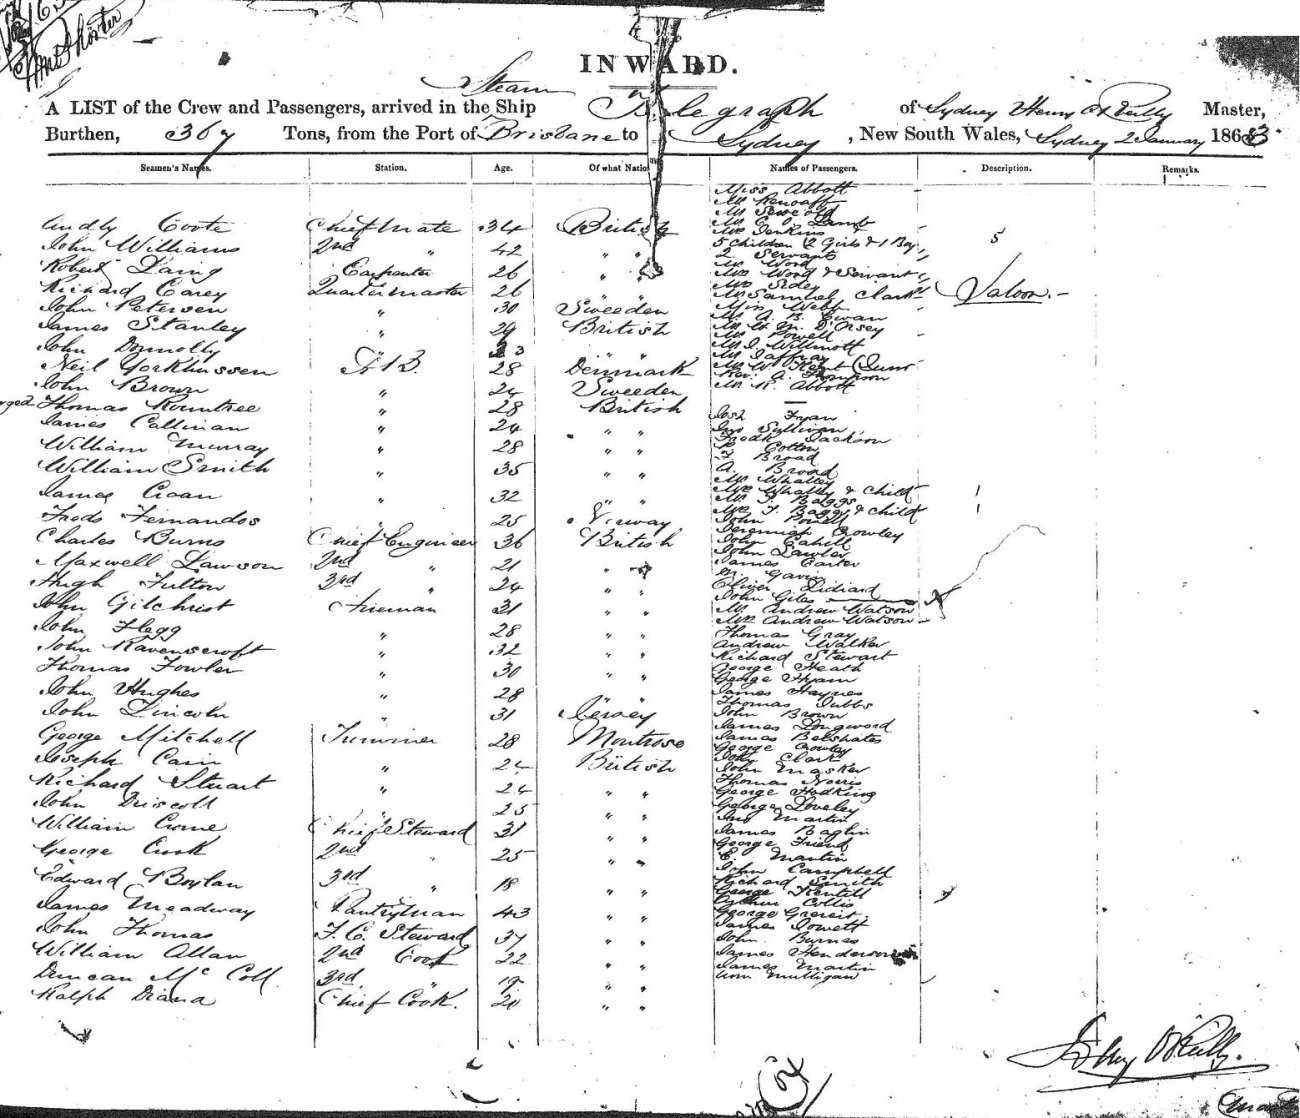 INWARD.
Steam
A LIST of the Crew and Passengers, arrived in the Ship Telegraph of Sydney Henry O'Reilly Master,
Burthen, 367 Tons, from the Port of Brisbane to Sydney, New South Wales, Sydney 2 January 1863
Seamen's Names. Station. Age. Of what Nation Names of Passengers. Description. Remarks.
Coote Chief Mate 34 British
John Williams 2nd " 42 " "
Robert Laing Carpenter 26 " "
Richard Carey Quartermaster 26 " "
John Petersen " 30 Sweeden
James Stanley " 29 British
John Donnolly " 23 " "
Neil 28 Denmark
John Brown " 24 Sweeden
Thomas Rountree " 28 British
James Callinan " 24 " "
William Murray " 28 " "
William Smith " 35 " "
James Croan " 32 " "
Fernandos " 25 Norway
Charles Burns Chief Engineer 36 British
Maxwell Lawson 2nd " 21 "
Hugh Fulton 3rd " 24 " "
John Gilchrist Fireman 31 " "
John Flegg " 28 " "
John Ravenscroft " 32 " "
Thomas Fowler " 30 " "
John Hughes " 28 " "
John Lincoln " 31 Jersey
George Mitchell Trimmer 28 Montrose
Joseph Cain " 24 British
Richard Stuart " 24 " "
John Driscoll 25 " "
William Crome Chief Steward 31 " "
George Cook 2nd " 25 " "
Edward Boylan 3rd " 18 " "
James Meadway Pantryman 43 " "
John Thomas F. C. Steward 37 " "
William Allan 2nd Cook 22 " "
Duncan McColl 3rd " 19 " "
Ralph Diana Chief Cook. 20 " "
Miss Abbott
Mr E. O. Lamb
Mrs Jenkins
5 children (2 Girls & 1 Boy 5
2 Servants
Mr Wood
Mrs Wood & Servant
Mr Samuel Clark Saloon.
Miss Webb
Mr A. B. Ewan
Mr W. M. D'Orsey
Mr Powell
Mr J. Willmott
Mr Jaffray
Mr W. Kent Junr
Rev. A. Thompson
Mr K. Abbott
Josh Fryan
Jno Sullivan
Fredk Jackson
R Cotton
T Broad
A. Broad
Mr Whalley
Mrs Whalley & Child 1
Mr T. Baggs
Mrs T. Baggs & Child 1
John Powell
Jeremiah Crowley
John Cahill
John Lawler
James Carter
Oliver Lidiard
John Giles
Mr Andrew Watson
Mrs Andrew Watson
Thomas Gray
Andrew Walker
Richard Stewart
George Heath
George Hyam
James Haynes
Thomas Dubbs
John Brown
James Longword
James Belshates
George Crowley
John Clark
John Masker
Thomas Norris
George Hodking
George Loveley
Jno Martin
James Baglin
George Friend
E. Martin
John Campbell
Richard Smith
George Kentill
Arthur Collis
James Jowett
John Burnes
James Henderson
James Martin
Wm Mulligan
Henry O'Reilly.